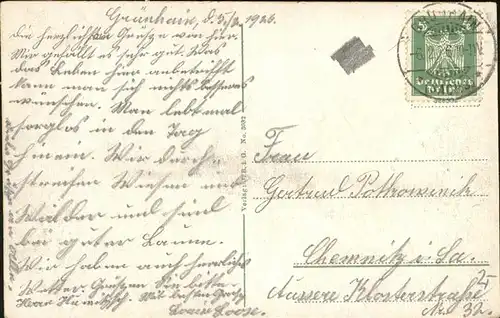 Grünhain, d. 5/8. 1926.
Die herzlichsten Grüße von hier.
Mir gefällt es sehr gut. Was
das Leben hier anbetrifft
kann man sich nichts besseres
wünschen. Man lebt mal
sorglos in den Tag
hinein. Wir durch-
streichen Wiesen und
Wälder und sind
bei guter Laune.
Wir haben auch herrliches
Wetter. Grüßen Sie bitte
Herrn Mit besten Grüßen
Loose.
Verlag No. 3032
Deutsches
Reich
Frau
Gertrud Potkowinik
Chemnitz i. Sa.
Äussere Klosterstraße
Nr. 32.